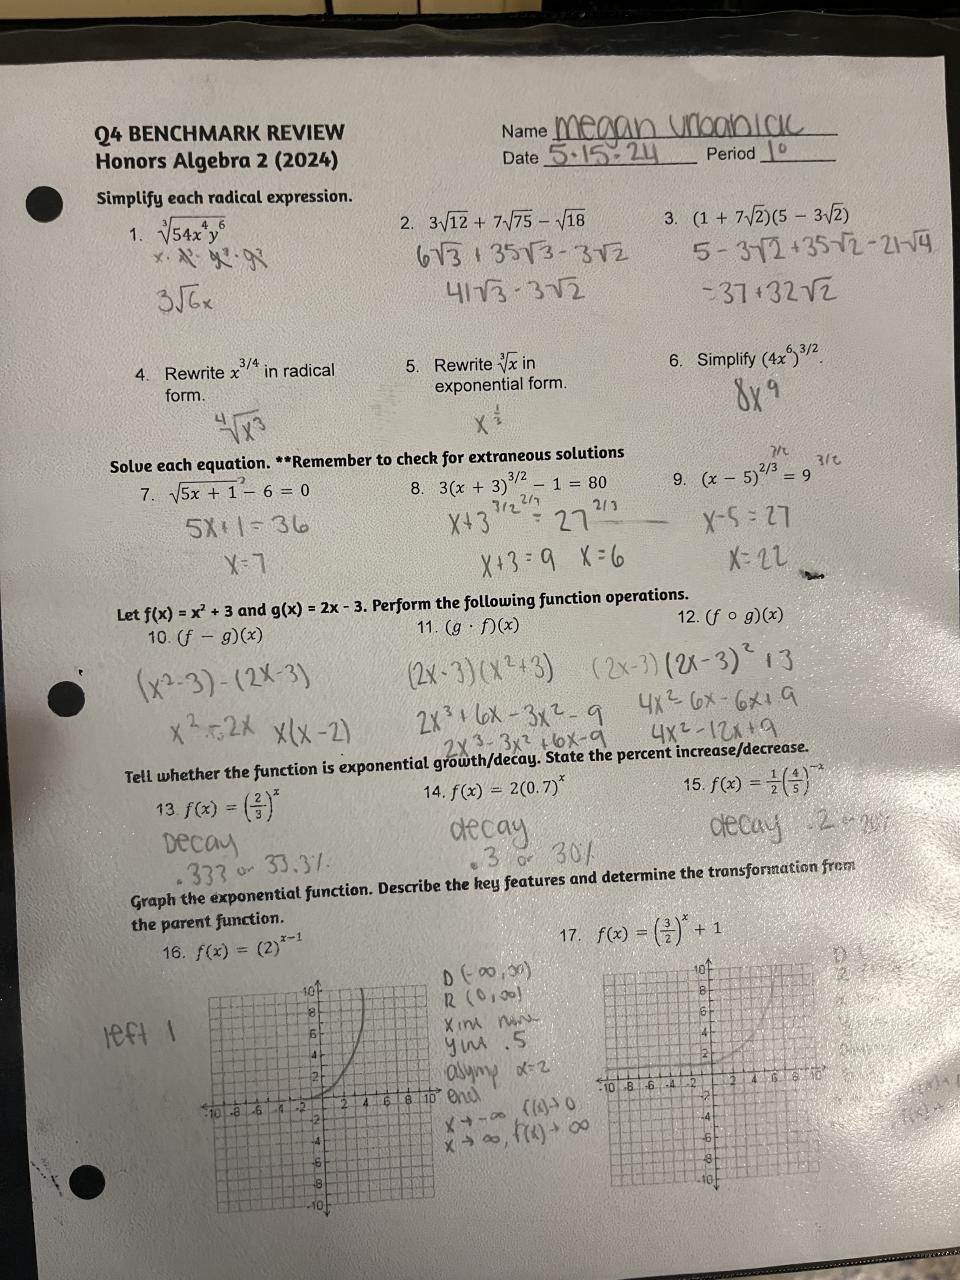 Q4 BENCHMARK REVIEW
Honors Algebra 2 (2024)
Name megan urbaniak
Date 5-15-24 Period 1°
Simplify each radical expression.
1. ∛54x⁴y⁶
x · x³ · y³ · y³
3√6x
2. 3√12 + 7√75 − √18
6√3 + 35√3 - 3√2
41√3 - 3√2
3. (1 + 7√2)(5 − 3√2)
5 - 3√2 + 35√2 - 21√4
-37 + 32√2
4. Rewrite x^3/4 in radical
form.
⁴√x³
5. Rewrite ∛x in
exponential form.
6. Simplify (4x⁶)^3/2.
8x⁹
Solve each equation. **Remember to check for extraneous solutions
7. √5x + 1 − 6 = 0
5x+1=36
x=7
8. 3(x + 3)^3/2 − 1 = 80
x+3^3/2 2/3 = 27^2/3
x+3=9 x=6
9. (x − 5)^2/3 = 9 3/2
x-5=27
x=22
Let f(x) = x² + 3 and g(x) = 2x - 3. Perform the following function operations.
10. (f − g)(x)
(x²-3)-(2x-3)
x² - 2x x(x-2)
11. (g · f)(x)
(2x-3)(x²+3)
2x³+6x-3x²-9
2x³-3x²+6x-9
12. (f ∘ g)(x)
(2x-3)(2x-3)²+3
4x²-6x-6x+9
4x²-12x+9
Tell whether the function is exponential growth/decay. State the percent increase/decrease.
13. f(x) = (2/3)^x
Decay
.333 or 33.3%
14. f(x) = 2(0.7)^x
decay
.3 or 30%
15. f(x) = 1/2(4/5)^−x
decay .2 or 20%
Graph the exponential function. Describe the key features and determine the transformation from
the parent function.
16. f(x) = (2)^x−1
left 1
10
8
6
4
2
-10 -8 -6 -4 -2 2 4 6 8 10
-2
-4
-6
-8
-10
D (-∞,∞)
R (0,∞)
x int none
y int .5
asymp x=2
end
x→-∞ f(x)→0
x→∞, f(x)→∞
17. f(x) = (3/2)^x + 1
10
8
6
4
2
-10 -8 -6 -4 -2 2 4 6 8 10
-2
-4
-6
-8
-10
D
R